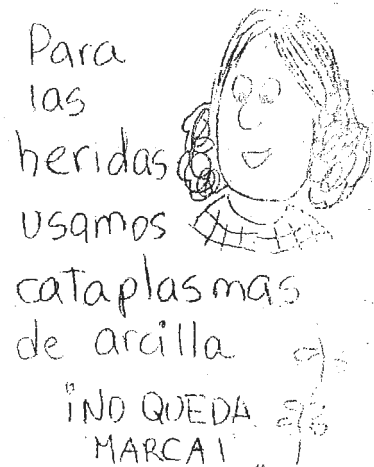 Para
las
heridas
usamos
cataplasmas
de arcilla
¡NO QUEDA
MARCA!